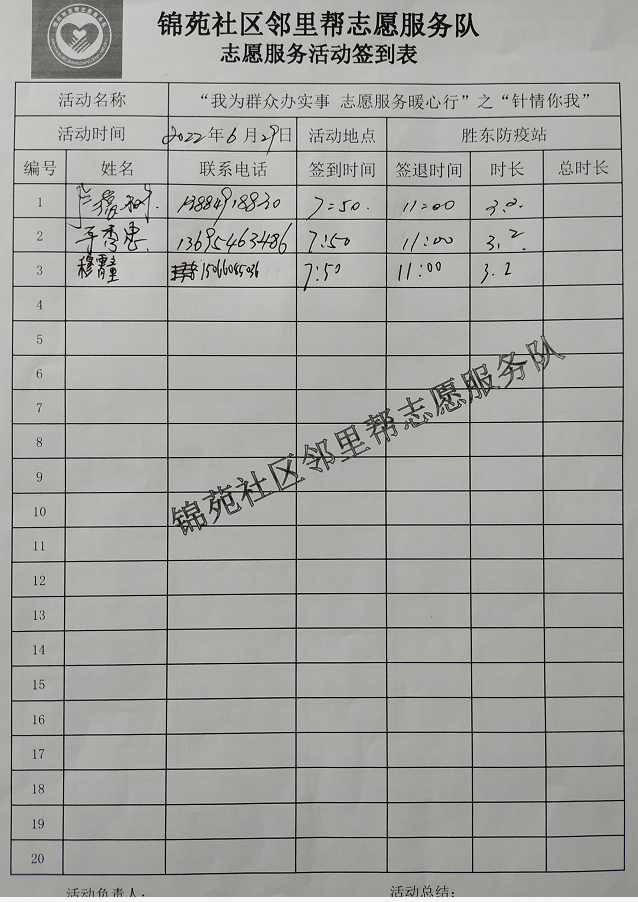 锦苑社区邻里帮志愿服务队
志愿服务活动签到表
活动名称 “我为群众办实事 志愿服务暖心行”之“针情你我”
活动时间 2022年6月29日 活动地点 胜东防疫站
编号 姓名 联系电话 签到时间 签退时间 时长 总时长
1 13884918830 7:50. 11:00 3.2
2 于秀忠 13695463486 7:50 11:00 3.2
3 穆霄童 15066045036 7:50 11:00 3.2
4
5
6
7
8
9
10
11
12
13
14
15
16
17
18
19
20
锦苑社区邻里帮志愿服务队
活动负责人: 活动总结: